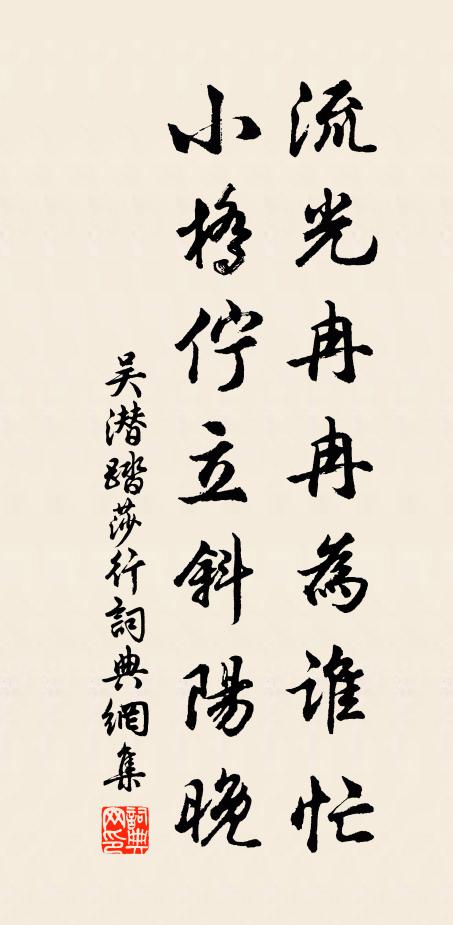 流光冉冉為誰忙
小橋佇立斜陽晚
吴潜踏莎行詞典網集
詞典網印